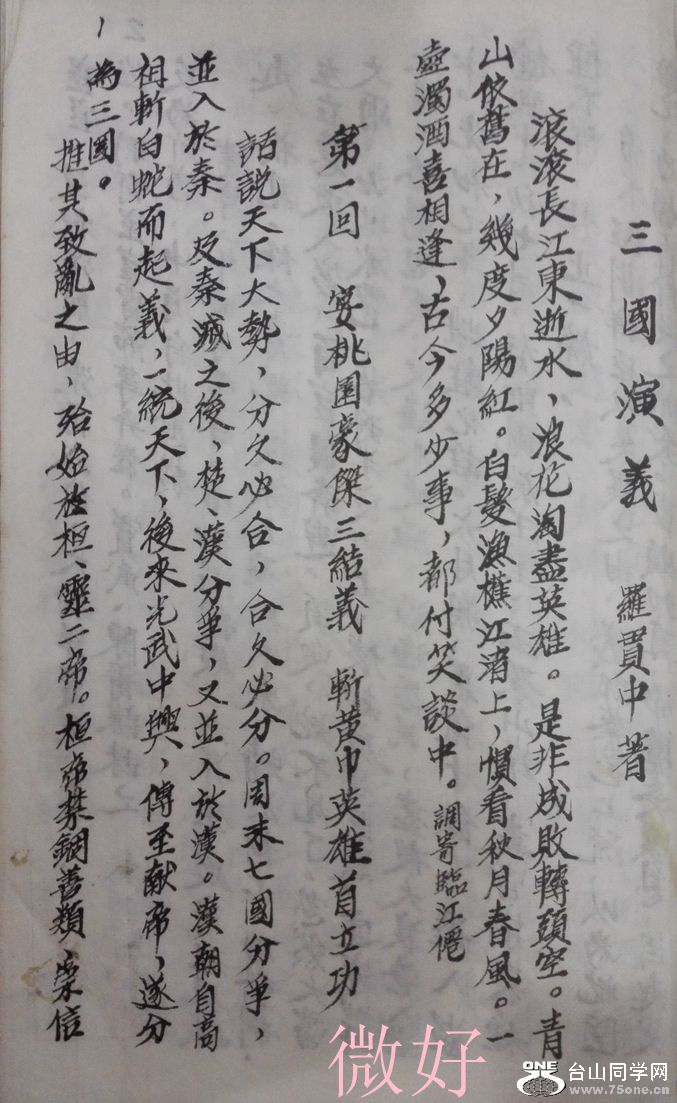 三國演義　羅貫中著
滾滾長江東逝水，浪花淘盡英雄。是非成敗轉頭空。青
山依舊在，幾度夕陽紅。白髮漁樵江渚上，慣看秋月春風。一
壺濁酒喜相逢，古今多少事，都付笑談中。調寄臨江仙
第一回　宴桃園豪傑三結義　斬黃巾英雄首立功
話說天下大勢，分久必合，合久必分。周末七國分爭，
並入於秦。及秦滅之後，楚、漢分爭，又並入於漢。漢朝自高
祖斬白蛇而起義，一統天下，後來光武中興，傳至獻帝，遂分
為三國。
推其致亂之由，殆始於桓、靈二帝。桓帝禁錮善類，崇信
1
微好
ONE
台山同学网
www.75one.cn